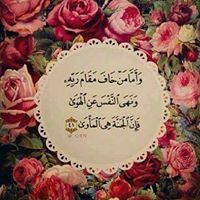 وَأَمَّا مَنْ خَافَ مَقَامَ رَبِّهِۦ
وَنَهَى ٱلنَّفْسَ عَنِ ٱلْهَوَىٰ
فَإِنَّ ٱلْجَنَّةَ هِىَ ٱلْمَأْوَىٰ ٤١